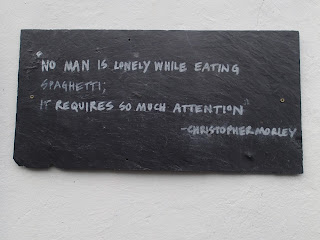 NO MAN IS LONELY WHILE EATING
SPAGHETTI;
IT REQUIRES SO MUCH ATTENTION
-CHRISTOPHER MORLEY